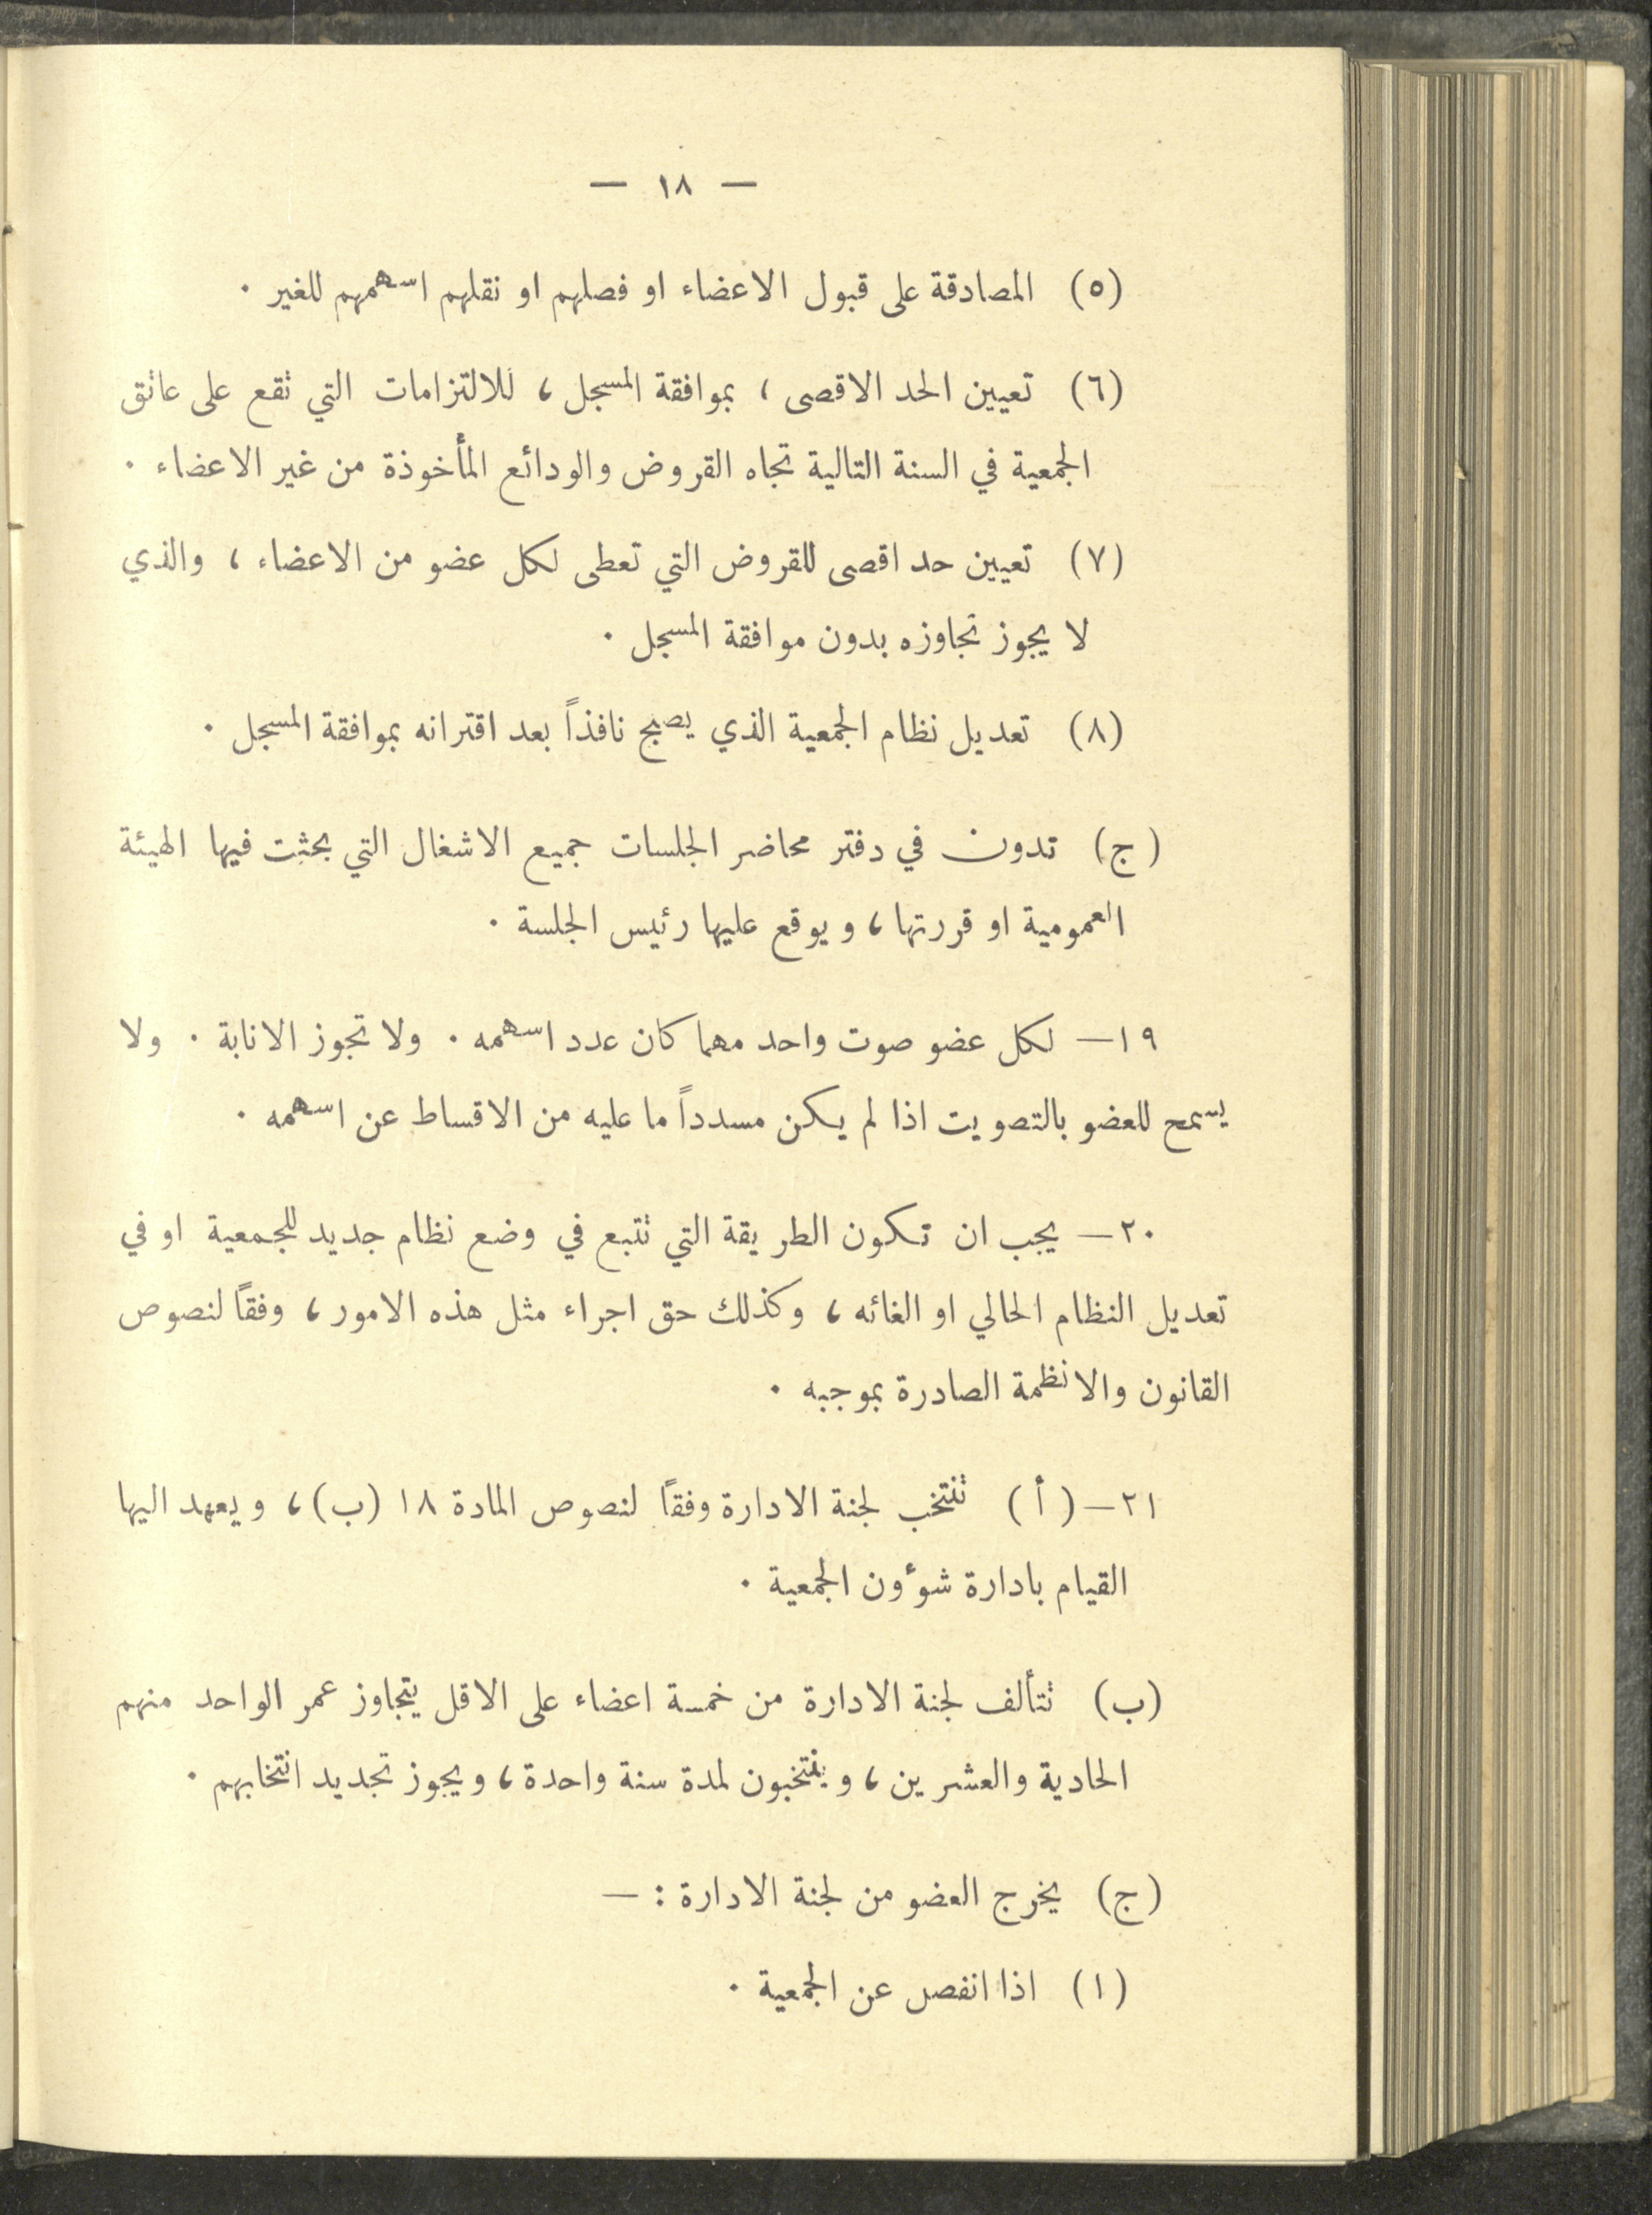 — ١٨ —
(٥) المصادقة على قبول الاعضاء او فصلهم او نقلهم اسهمهم للغير .
(٦) تعيين الحد الاقصى ، بموافقة المسجل ، للالتزامات التي تقع على عاتق
الجمعية في السنة التالية تجاه القروض والودائع المأخوذة من غير الاعضاء .
(٧) تعيين حد اقصى للقروض التي تعطى لكل عضو من الاعضاء ، والذي
لا يجوز تجاوزه بدون موافقة المسجل .
(٨) تعديل نظام الجمعية الذي يصبح نافذاً بعد اقترانه بموافقة المسجل .
(ج) تدون في دفتر محاضر الجلسات جميع الاشغال التي بحثت فيها الهيئة
العمومية او قررتها ، ويوقع عليها رئيس الجلسة .
١٩ — لكل عضو صوت واحد مهما كان عدد اسهمه . ولا تجوز الانابة . ولا
يسمح للعضو بالتصويت اذا لم يكن مسدداً ما عليه من الاقساط عن اسهمه .
٢٠ — يجب ان تكون الطريقة التي تتبع في وضع نظام جديد للجمعية او في
تعديل النظام الحالي او الغائه ، وكذلك حق اجراء مثل هذه الامور ، وفقاً لنصوص
القانون والانظمة الصادرة بموجبه .
٢١ — (أ) تنتخب لجنة الادارة وفقاً لنصوص المادة ١٨ (ب) ، ويعهد اليها
القيام بادارة شوٴون الجمعية .
(ب) تتألف لجنة الادارة من خمسة اعضاء على الاقل يتجاوز عمر الواحد منهم
الحادية والعشرين ، وينتخبون لمدة سنة واحدة ، ويجوز تجديد انتخابهم .
(ج) يخرج العضو من لجنة الادارة : —
(١) اذا انفصل عن الجمعية .